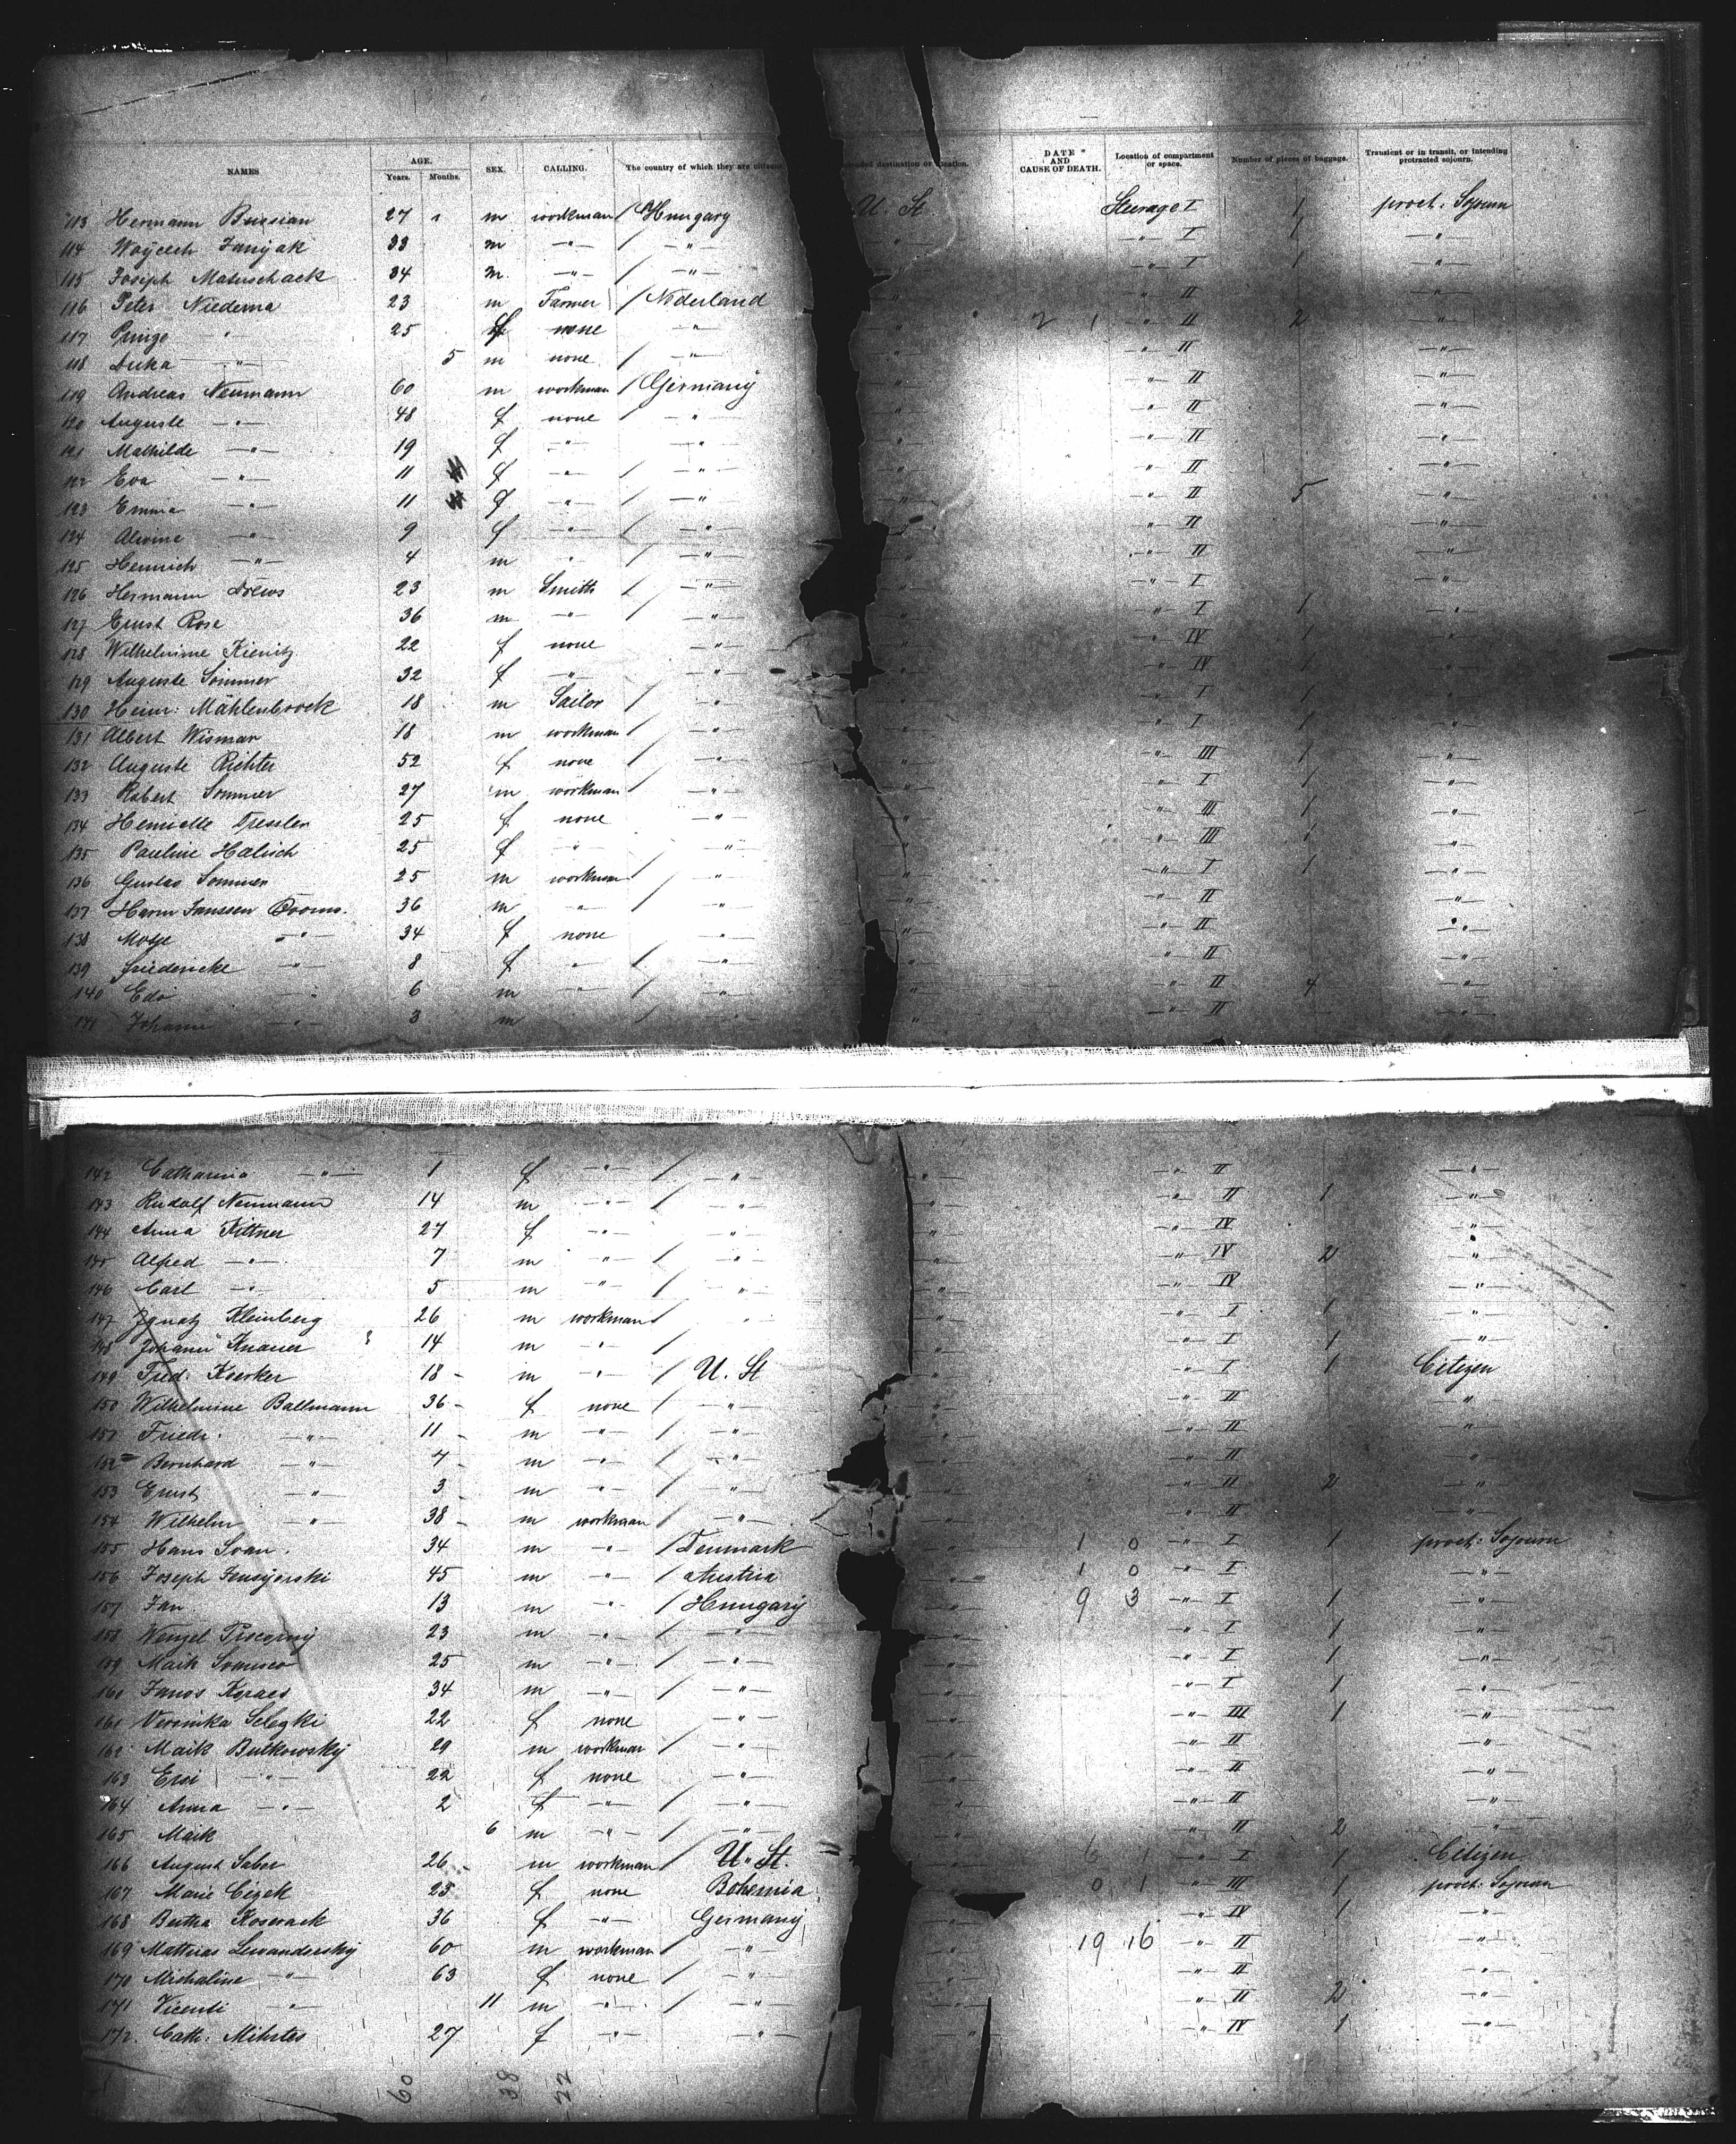 NAMES AGE. Years. Months. SEX. CALLING. The country of which they are citizens destination or location. DATE AND CAUSE OF DEATH. Location of compartment or space. Number of pieces of baggage. Transient or in transit, or intending protracted sojourn.
113 Hermann Bussian 27 m workman / Hungary U St Steerage I 1 proct: Sojourn
114 Woyciech 33 m —"— / —"— " —"— I 1 —"—
115 Joseph Matuschack 34 m. —"— / —"— " —"— I 1 —"—
116 Peter Niedema 23 m Farmer / Nederland " " II —"—
117 —"— 25 f none —"— " 2 1 —"— II 2 —"—
118 —"— 5 m none / —"— —"— II —"—
119 Andreas Neumann 60 m workman / Germany " —"— II —"—
120 Auguste —"— 48 f none —"— " —"— II —"—
121 Mathilde —"— 19 f —"— —"— " —"— II —"—
122 Eva —"— 11 f —"— / —"— " —"— II —"—
123 Emma —"— 11 f —"— / —"— " —"— II 5 —"—
124 Alwine —"— 9 f —"— / —"— " —"— II "
125 Heinrich —"— 4 m " / —"— " —"— II "
126 Hermann Drews 23 m Smith / —"— " —"— I "
127 Ernst Rose 36 m —"— / —"— " —"— I 1 —"—
128 Wilhelmine Kienitz 22 f none —"— " —"— IV 1 "
129 Auguste Sommer 32 f —"— —"— " —"— IV 1 "
130 Heinr: Mählenbrock 18 m Sailor / —"— " —"— I 1 "
131 Albert Wismar 18 m workman / —"— " —"— I 1 —"—
132 Auguste Richter 52 f none / —"— " —"— III 1 —"—
133 Robert Sommer 27 m workman / —"— " —"— I 1 —"—
134 Henriette Dressler 25 f none —"— " —"— III 1 —"—
135 Pauline Halisch 25 f —"— —"— " —"— III 1 —"—
136 Gustav Sommer 25 m workman / —"— " —"— I 1 —"—
137 Harm Janssen 36 m —"— / —"— " —"— II —"—
138 —"— 34 f none —"— " —"— II —"—
139 Friedericke —"— 8 f " / —"— " —"— II —"—
140 Edo —"— 6 m —"— / —"— " —"— II 4 —"—
141 Johann —"— 3 m / " " —"— II —"—
142 Catharina —"— 1 f —"— / —"— " —"— II —"—
143 Rudolf Neumann 14 m —"— / —"— " —"— II 1 —"—
144 Anna Kittner 27 f —"— —"— " —"— IV "
145 Alfred —"— 7 m —"— / —"— " —"— IV 2 "
146 Carl —"— 5 m —"— / —"— " —"— IV "
147 Ignatz Kleinberg 26 m workman / " " —"— I 1 —"—
148 Johann Knauer 14 m —"— / " —"— I 1 —"—
149 Fred. Koerker 18 - m —"— / U. St " —"— I 1 Citizen
150 Wilhelmine Ballmann 36 - f none / —"— " —"— II "
151 Friedr. —"— 11 - m —"— / —"— " —"— II "
152 Bernhard —"— 7 - m —"— / —"— " —"— II "
153 Ernst —"— 3 - m —"— / —"— " —"— II 2 —"—
154 Wilhelm —"— 38 - m workman / —"— " —"— II "
155 Hans Svan. 34 m —"— / Denmark " 1 0 —"— I 1 proct: Sojourn
156 Joseph 45 m —"— / Austria " 1 0 —"— I —"—
157 Jan 13 m —"— / Hungary " 9 3 —"— I 1 —"—
158 Wenzel 23 m —"— / —"— " —"— I 1 "
159 Maik 25 m —"— / —"— " —"— I 1 —"—
160 Janos 34 m —"— / —"— " —"— I 1 —"—
161 Veronika 22 f none —"— " —"— III 1 —"—
162 Maik Butkowsky 29 m workman / —"— " —"— II —"—
163 —"— 22 f none —"— " —"— II "
164 Anna —"— 2 f —"— / —"— " —"— II —"—
165 Maik 6 m —"— / —"— " —"— II 2 "
166 August Saber 26 - m workman / U. St. " 6 1 —"— I 1 Citizen
167 Marie Cizek 25 f none Bohemia " 0 1 —"— III 1 proct: Sojourn
168 Bertha Koserack 36 f —"— Germany " —"— IV 1 —"—
169 Mathias Lewandersky 60 m workman / —"— " 19 16 —"— II —"—
170 Michaline —"— 63 f none / —"— " —"— II —"—
171 Vicenti —"— 11 m —"— / —"— " —"— II 2 —"—
172. Cath. 27 f —"— —"— " —"— IV 1 —"—
60 38 22